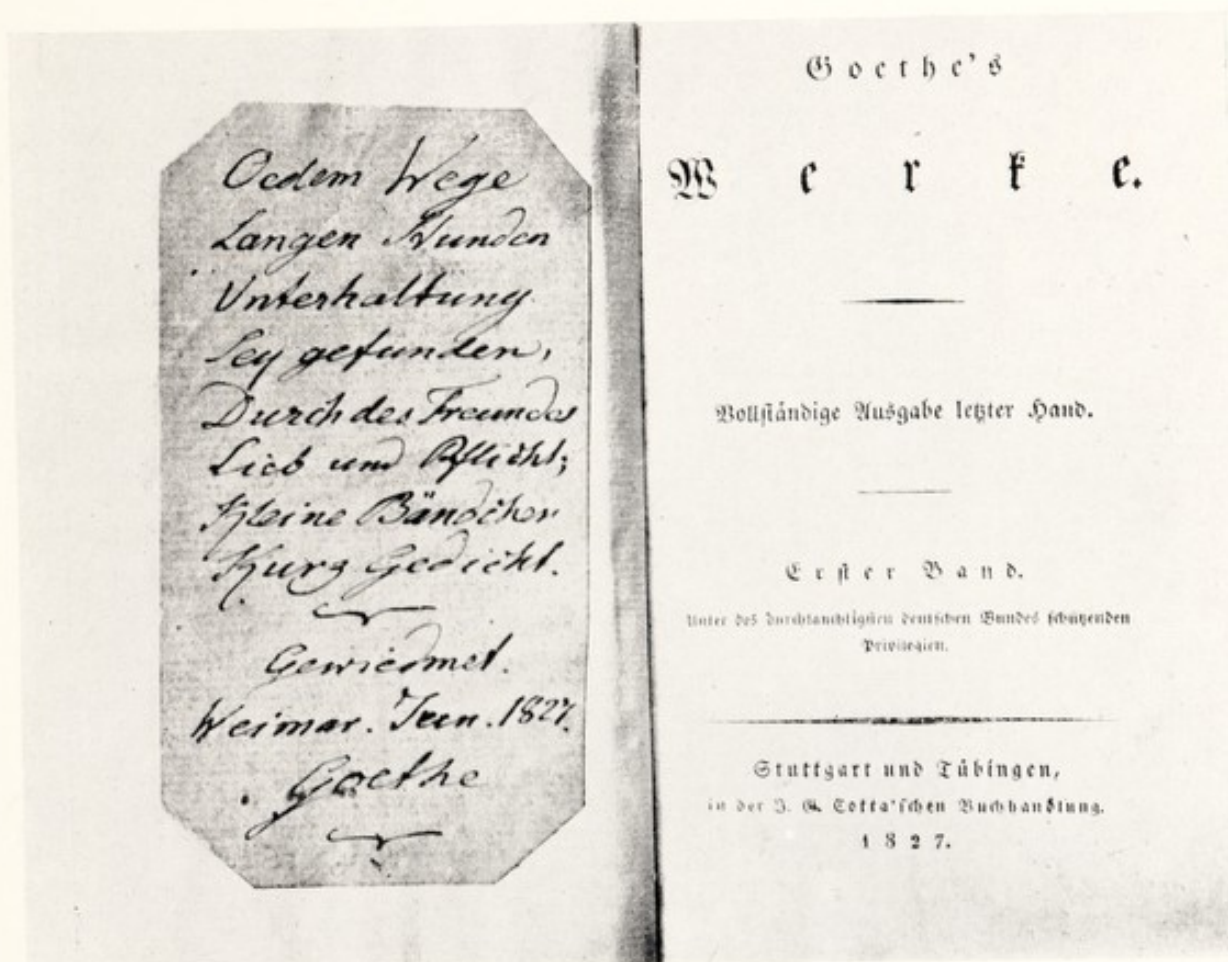 Oedem Wege
Langen Stunden
Unterhaltung
Sey gefunden,
Durch des Freundes
Lieb und Pflicht;
Kleine Bändchen
Kurz Gedicht.
Gewiedmet.
Weimar. Jun. 1827.
Goethe
Goethe's
Werke.
Vollständige Ausgabe letzter Hand.
Erster Band.
Unter des durchlauchtigsten deutschen Bundes schützenden
Privilegien.
Stuttgart und Tübingen,
in der J. G. Cotta'schen Buchhandlung.
1827.